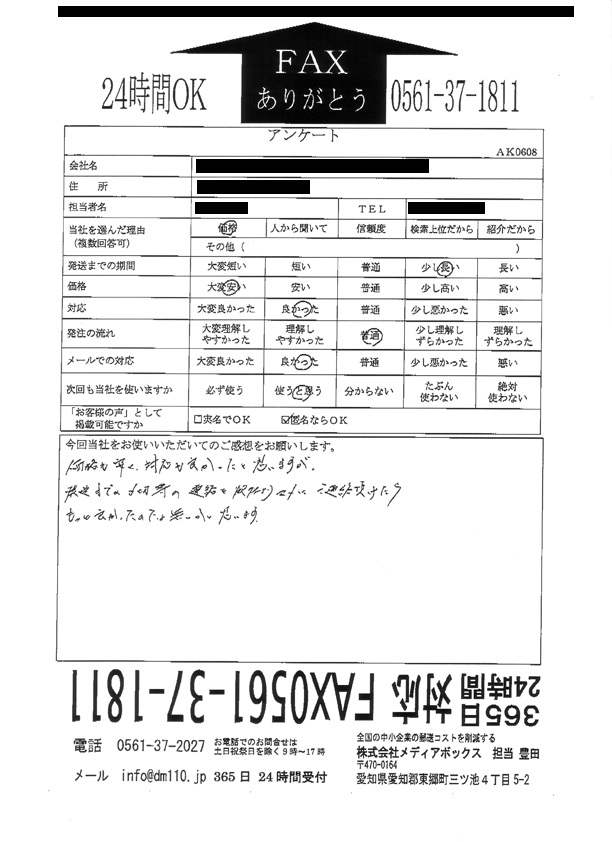 24時間OK
FAX
ありがとう
0561-37-1811
アンケート
AK0608
会社名
住 所
担当者名 TEL
当社を選んだ理由 (複数回答可) 価格 人から聞いて 信頼度 検索上位だから 紹介だから
その他 ( )
発送までの期間 大変短い 短い 普通 少し長い 長い
価格 大変安い 安い 普通 少し高い 高い
対応 大変良かった 良かった 普通 少し悪かった 悪い
発注の流れ 大変理解しやすかった 理解しやすかった 普通 少し理解しずらかった 理解しずらかった
メールでの対応 大変良かった 良かった 普通 少し悪かった 悪い
次回も当社を使いますか 必ず使う 使うと思う 分からない たぶん使わない 絶対使わない
「お客様の声」として掲載可能ですか □実名でOK ☑匿名ならOK
今回当社をお使いいただいてのご感想をお願いします。
価格も安く、対応も良かったと思いますが、
発送までは
思います
365日24時間対応 FAX0561-37-1811
電話 0561-37-2027 お電話でのお問合せは土日祝祭日を除く9時～17時
メール info@dm110.jp 365日24時間受付
全国の中小企業の郵送コストを削減する
株式会社メディアボックス 担当 豊田
〒470-0164
愛知県愛知郡東郷町三ツ池4丁目5-2